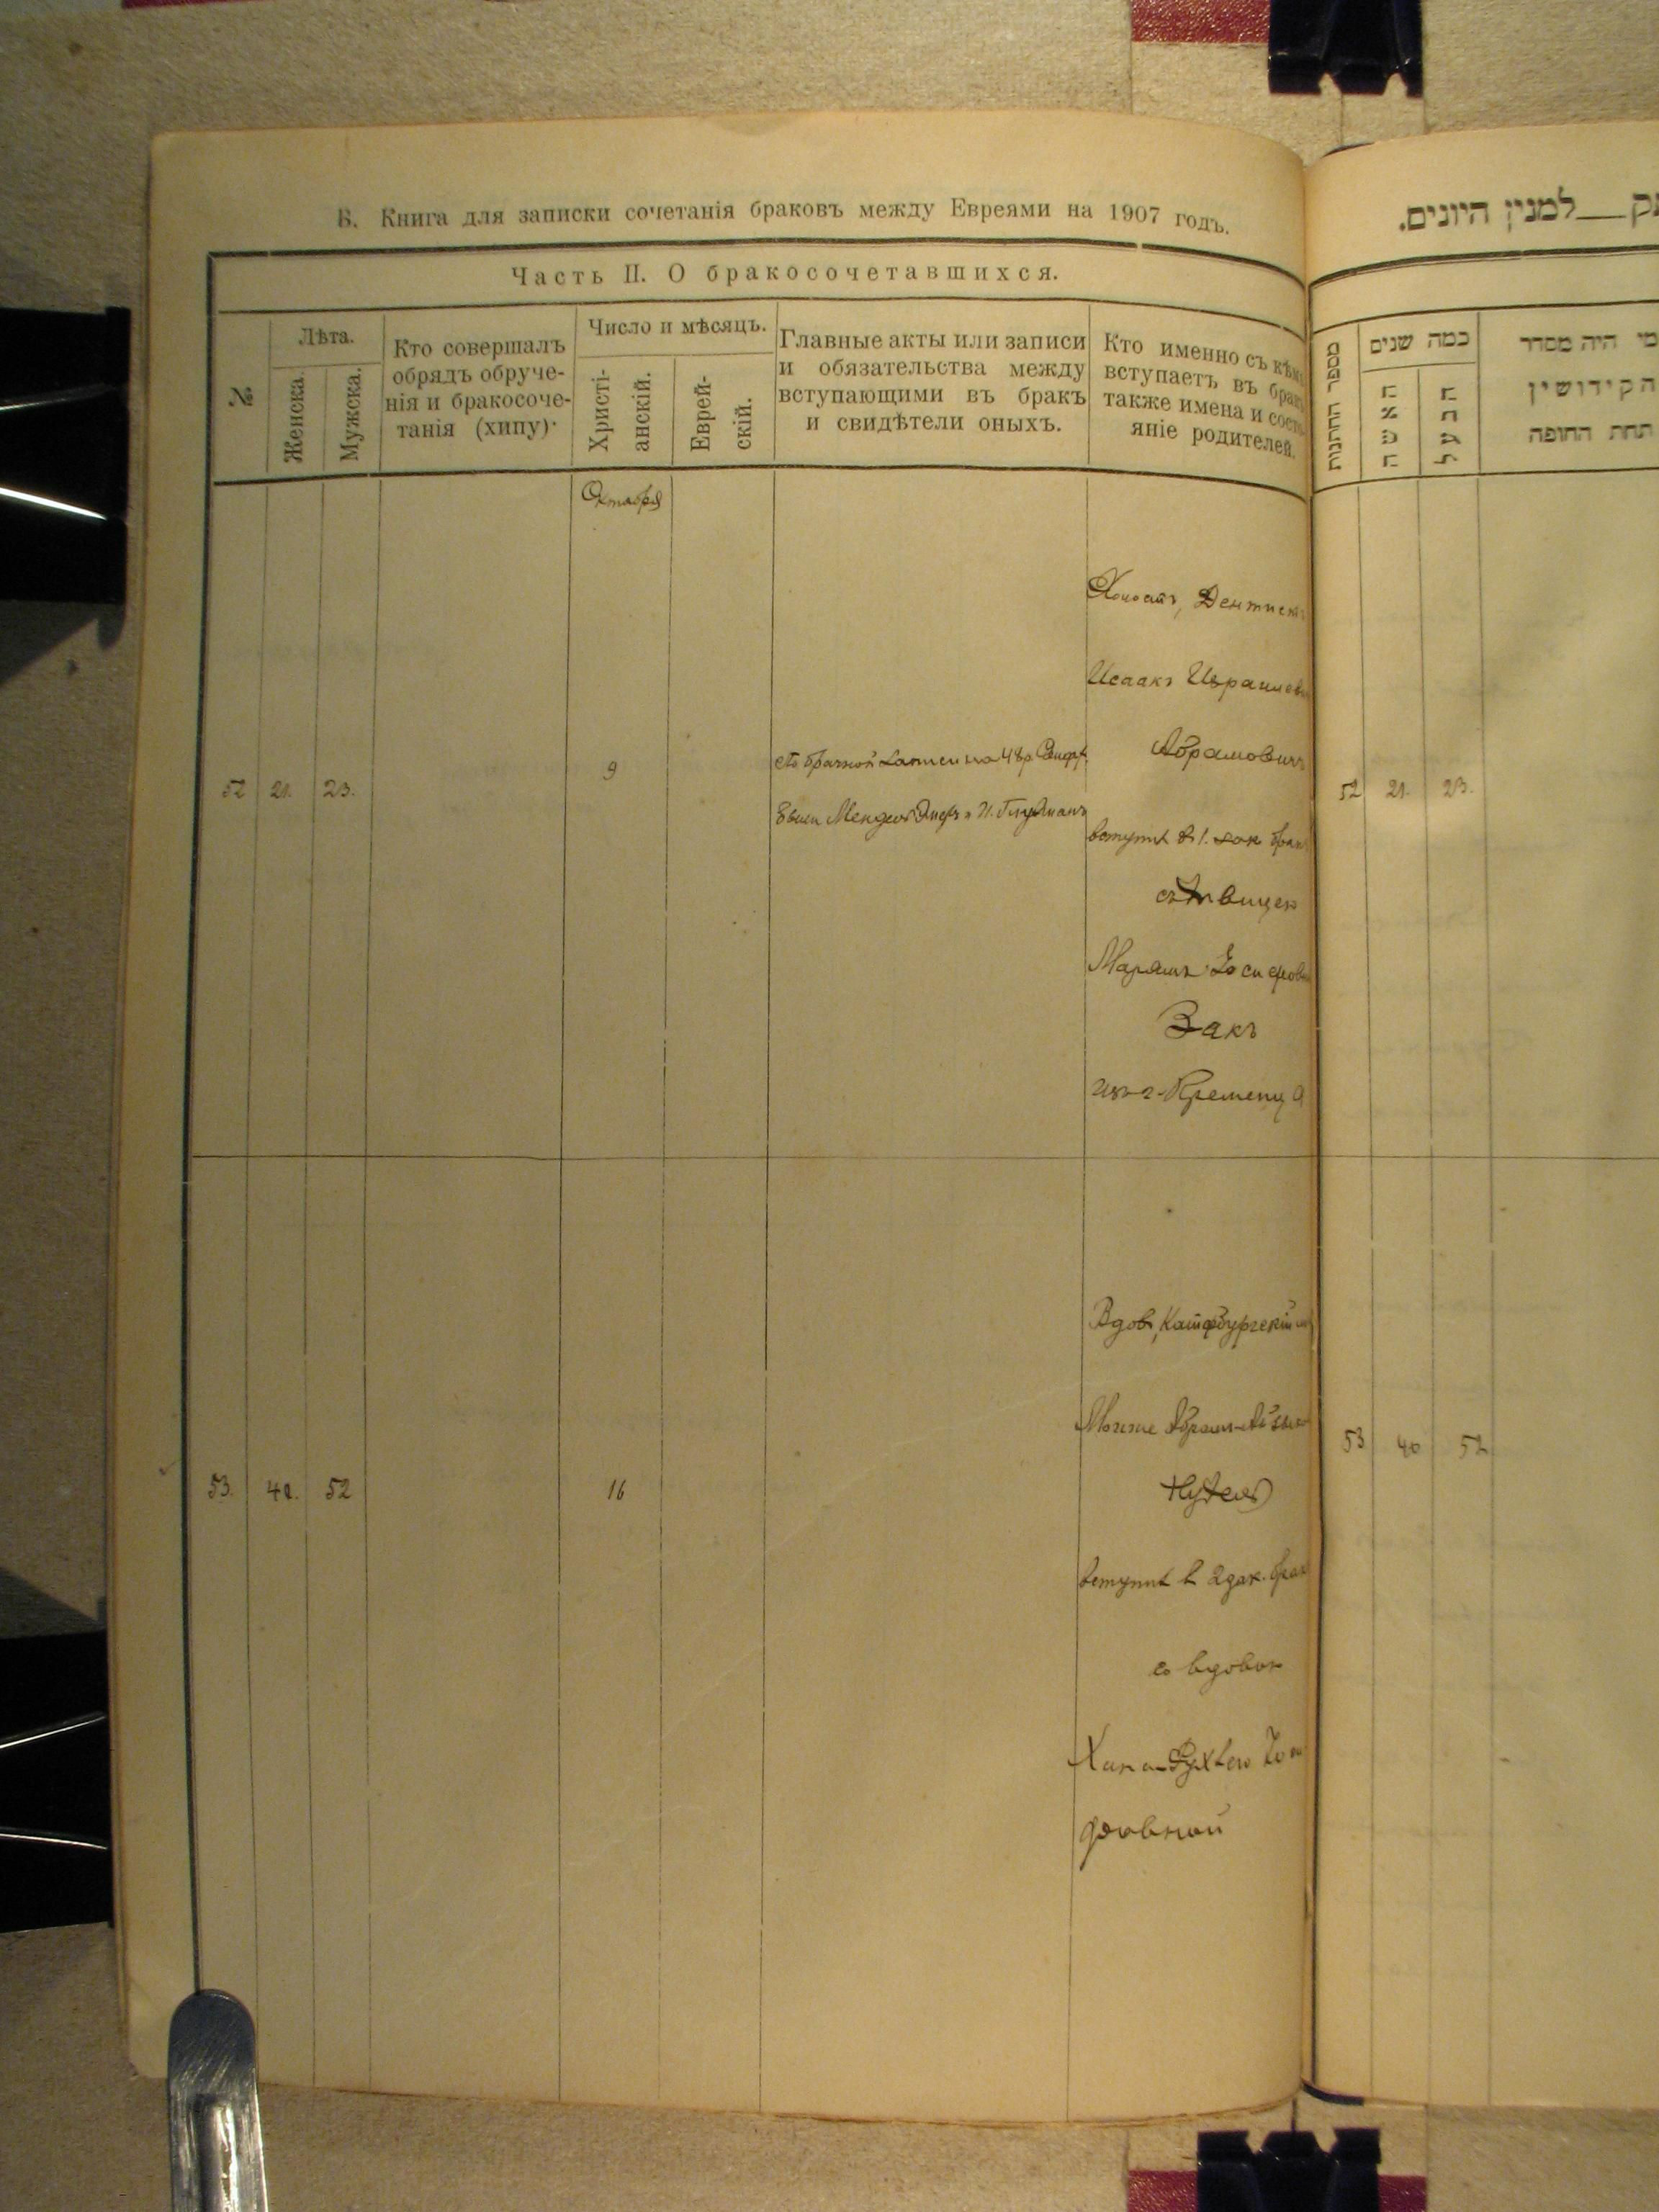 В. Книга для записки сочетанія браковъ между Евреями на 1907 годъ.
Часть II. О бракосочетавшихся.
№
Лѣта.
Женска.
Мужска.
Кто совершалъ
обрядъ обруче-
нія и бракосоче-
танія (хипу).
Число и мѣсяцъ.
Христі-
анскій.
Еврей-
скій.
Главные акты или записи
и обязательства между
вступающими въ бракъ
и свидѣтели оныхъ.
Кто именно съ кѣмъ
вступаетъ въ бракъ
также имена и состо-
яніе родителей.
Октября
52 21. 23.
9
По брачной записи на 48 р.
Менделъ
Холост, Дентистъ
Исаакъ Израилев
Абрамовичъ
вступил в 1. зак брак
съ девицею
Марьямъ Іосифов
Закъ
изъ г. Кременца
53. 40. 52
16
Вдов,
Мошке Абрам-
Нудель
вступил в 2 зак. брак
со вдовою
Хана-
фовной
למנין היונים.
מספר החתנות
כמה שנים
האשה
הבעל
מי היה מסדר
הקידושין
תחת החופה
52 21. 23.
53 40 52